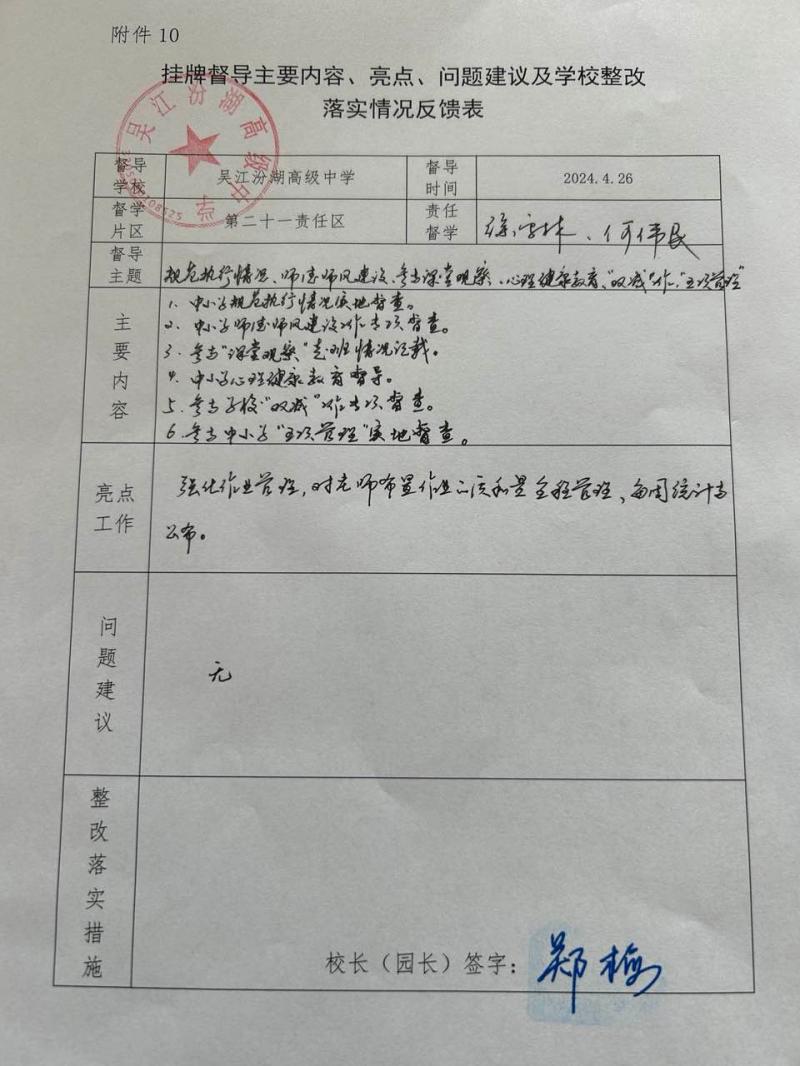 附件 10
挂牌督导主要内容、亮点、问题建议及学校整改
落实情况反馈表
吴江汾湖高级中学
督导学校
吴江汾湖高级中学
督导时间
2024.4.26
督学片区
第二十一责任区
责任督学
何伟民
督导主题
规范执行情况、师德师风建设、参与课堂观察、心理健康教育、“双减”工作、“五项管理”
主要内容
1. 中小学规范执行情况实地督查。
2. 中小学师德师风建设工作专项督查。
3. 参与“课堂观察”走班情况记载。
4. 中小学心理健康教育督导。
5. 参与学校“双减”工作专项督查。
6. 参与中小学“五项管理”实地督查。
亮点工作
强化作业管理，对老师布置作业的质和量全程管理，每周统计与
公布。
问题建议
无
整改落实措施
校长（园长）签字：
郑梅